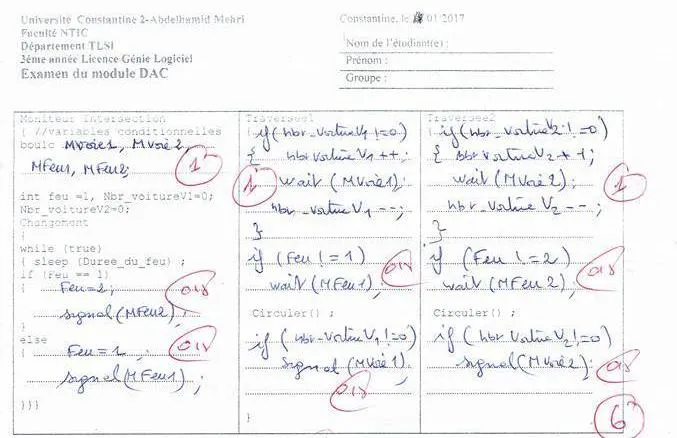 Université Constantine 2-Abdelhamid Mehri
Faculté NTIC
Département TLSI
3éme année Licence Génie Logiciel
Examen du module DAC
Constantine, le 01 2017
Nom de l'étudiant(e) :
Prénom :
Groupe :
Moniteur Intersection
{ //variables conditionnelles
boulc Mvoie1, Mvoie2,
MFeu1, MFeu2;
1
int feu =1, Nbr_voitureV1=0;
Nbr_voitureV2=0;
Changement
{
while (true)
{ sleep (Duree_du_feu) ;
if (Feu == 1)
{ Feu=2;
signal(MFeu2);
}
else
{ Feu=1 ;
signal(MFeu1) ;
}}}
Traversee1
{ if(nbr_voitureV1 !=0)
{ nbr voitureV1 ++;
wait (MVoie1);
nbr_voitureV1 --;
}
if (Feu != 1)
wait(MFeu1);
Circuler() ;
if (nbr_voitureV1 !=0)
Signal (MVoie1)
}
1
Traversee2
{ if(nbr_voitureV2 ! =0)
{ nbr voitureV2 ++;
wait(MVoie2);
nbr_voitureV2 --;
}
if (Feu != 2)
wait(MFeu2);
Circuler() ;
if (nbr voitureV2 !=0)
signal(MVoie2);
1
6